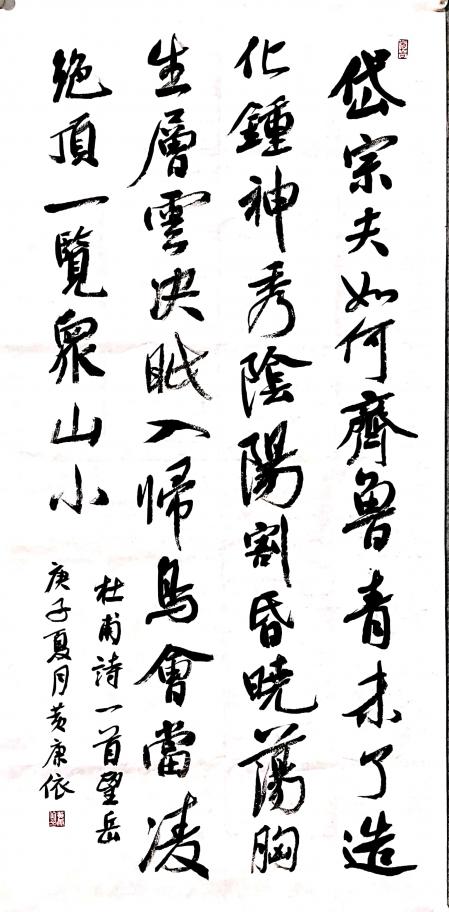 岱宗夫如何齊魯青未了造
化鍾神秀陰陽割昏曉蕩胸
生層雲決眦入歸鳥會當凌
絕頂一覽眾山小
杜甫詩一首望岳
庚子夏月黃康依